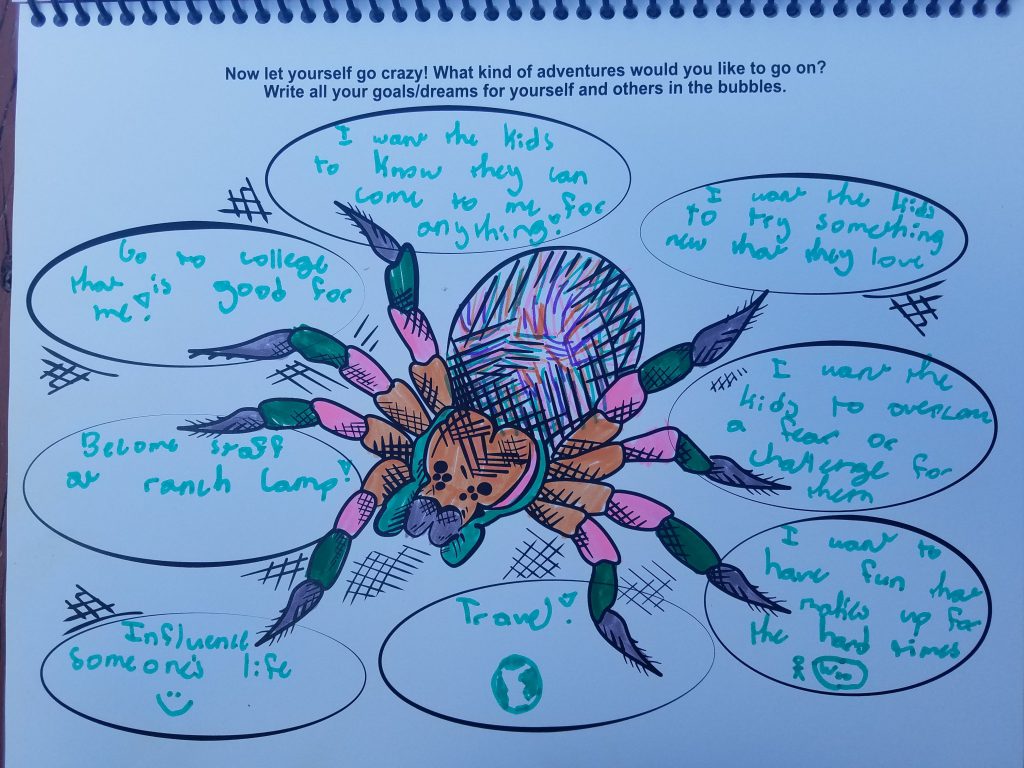 Now let yourself go crazy! What kind of adventures would you like to go on?
Write all your goals/dreams for yourself and others in the bubbles.
I want the kids
to know they can
come to me for
anything!
I want the kids
to try something
new that they love
Go to college
that is good for
me!
I want the
kids to overcome
a fear or
challenge for
them
Become staff
at ranch camp!
I want to
have fun that
makes up for
the hard times
Woo
Influence
someone's life
Travel!